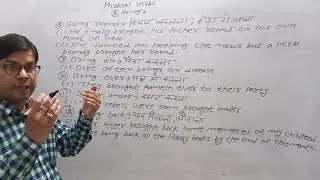 Phrasal verbs
Bring's
Bring round → विचार बदलना, होश में लाना
(i) He finally brought his father round to his own
Point of view
(ii) She fainted on hearing the news but a little
brandy brought her round
Bring on →
(i) Dirt often brings on disease
Bring over →
brought Ramesh over to their Party
under → दमन करना
rebels were soon brought under
back → याद दिलाना, लौटाना
letter brought back some memories of my childhood
bring back all the library books by the end of this month.